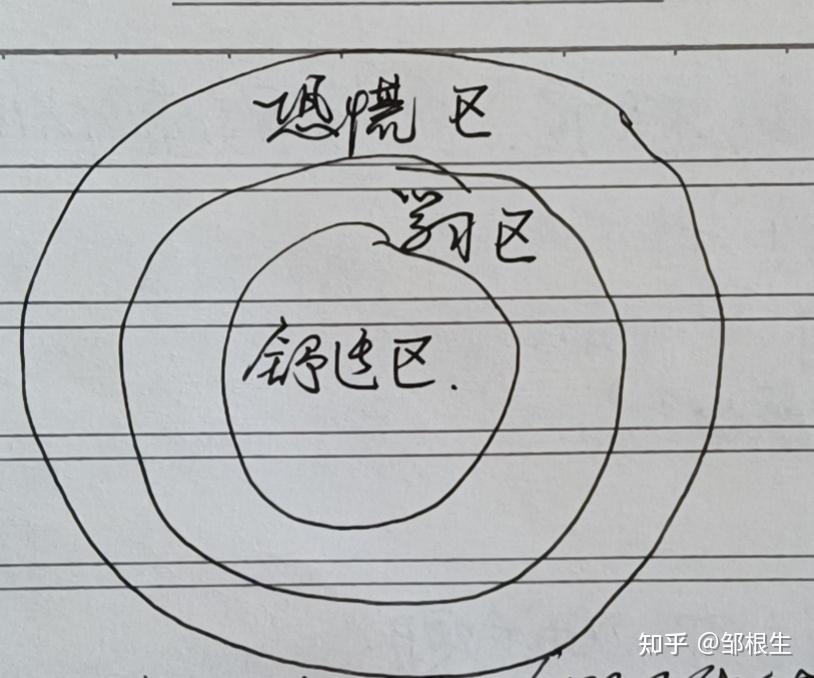 恐慌区
学习区
舒适区.
知乎 @邹根生